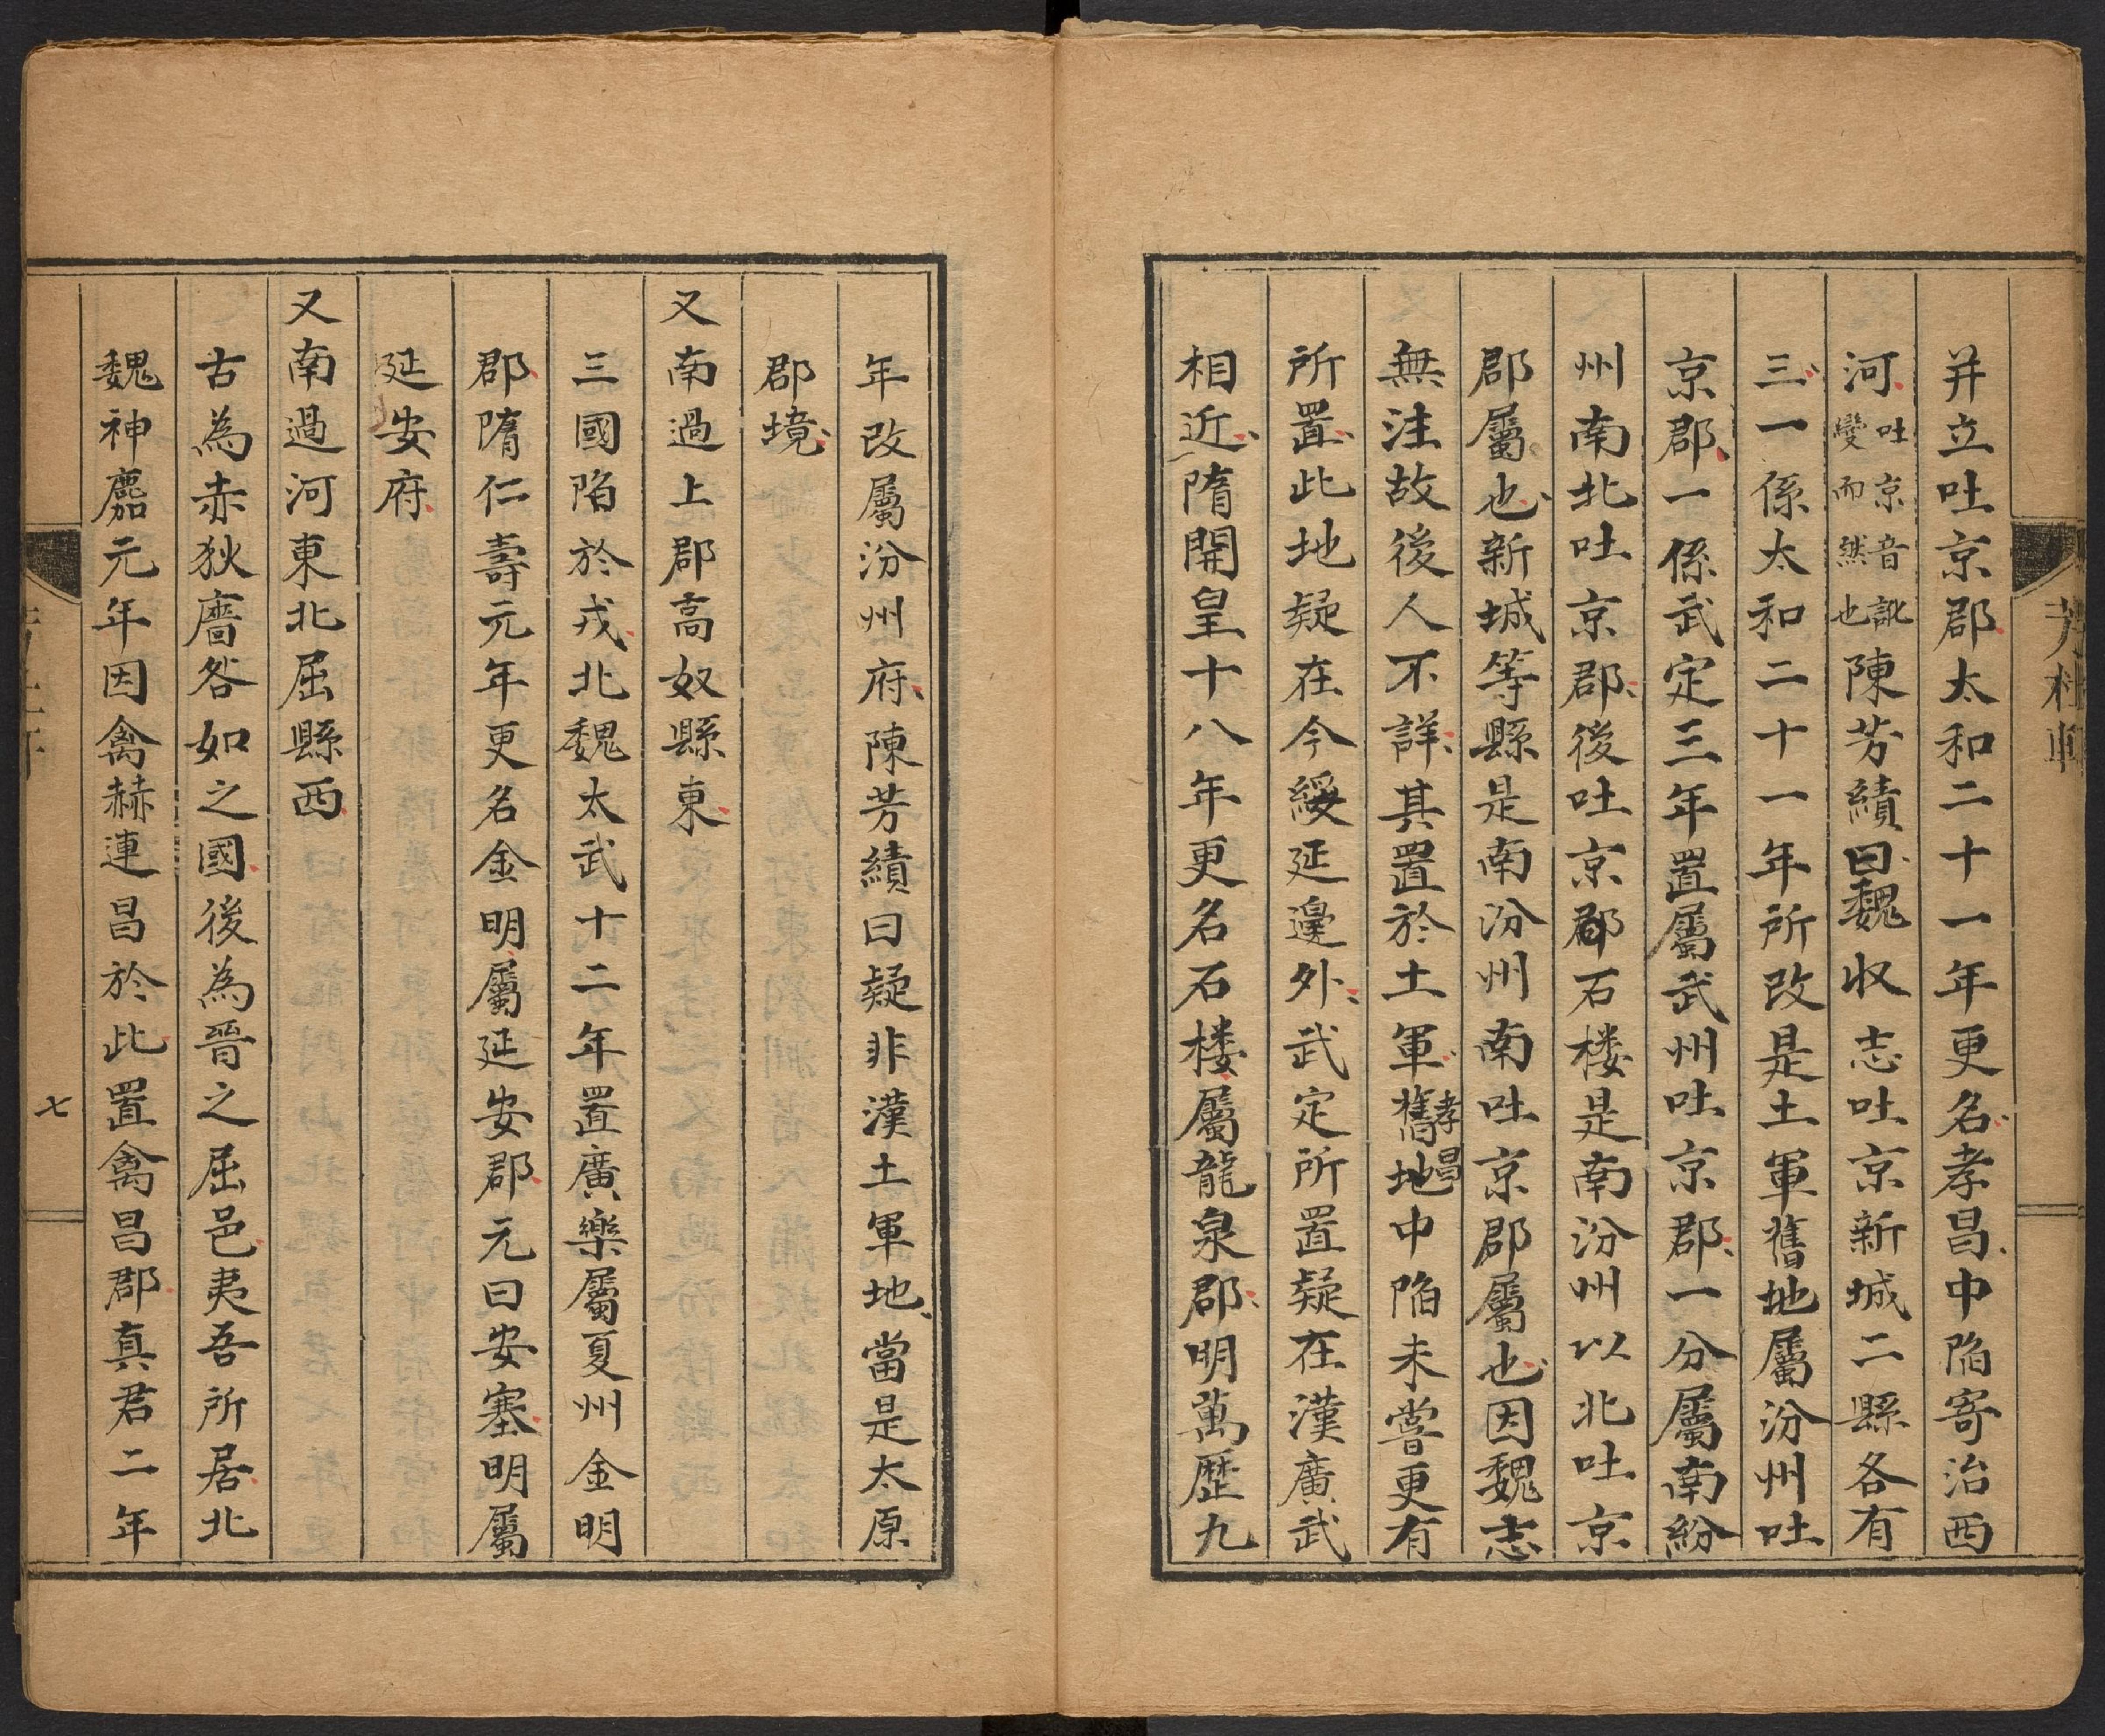 并立吐京郡太和二十一年更名孝昌中陷寄治西
河吐京音訛變而然也陳芳績曰魏收志吐京新城二縣各有
三一係太和二十一年所改是土軍舊地屬汾州吐
京郡一係武定三年置屬武州吐京郡一分屬南紛
州南北吐京郡後吐京郡石楼是南汾州以北吐京
郡屬也新城等縣是南汾州南吐京郡屬也因魏志
無注故後人不詳其置於土軍舊地孝昌中陷未嘗更有
所置此地疑在今綏延邊外武定所置疑在漢廣武
相近隋開皇十八年更名石楼屬龍泉郡明萬歷九
年改屬汾州府陳芳績曰疑非漢土軍地當是太原
郡境
又南過上郡高奴縣東
三國陷於戎北魏太武十二年置廣樂屬夏州金明
郡隋仁壽元年更名金明屬延安郡元曰安塞明屬
延安府
又南過河東北屈縣西
古為赤狄廧咎如之國後為晉之屈邑夷吾所居北
魏神䴥元年因禽赫連昌於此置禽昌郡真君二年
七